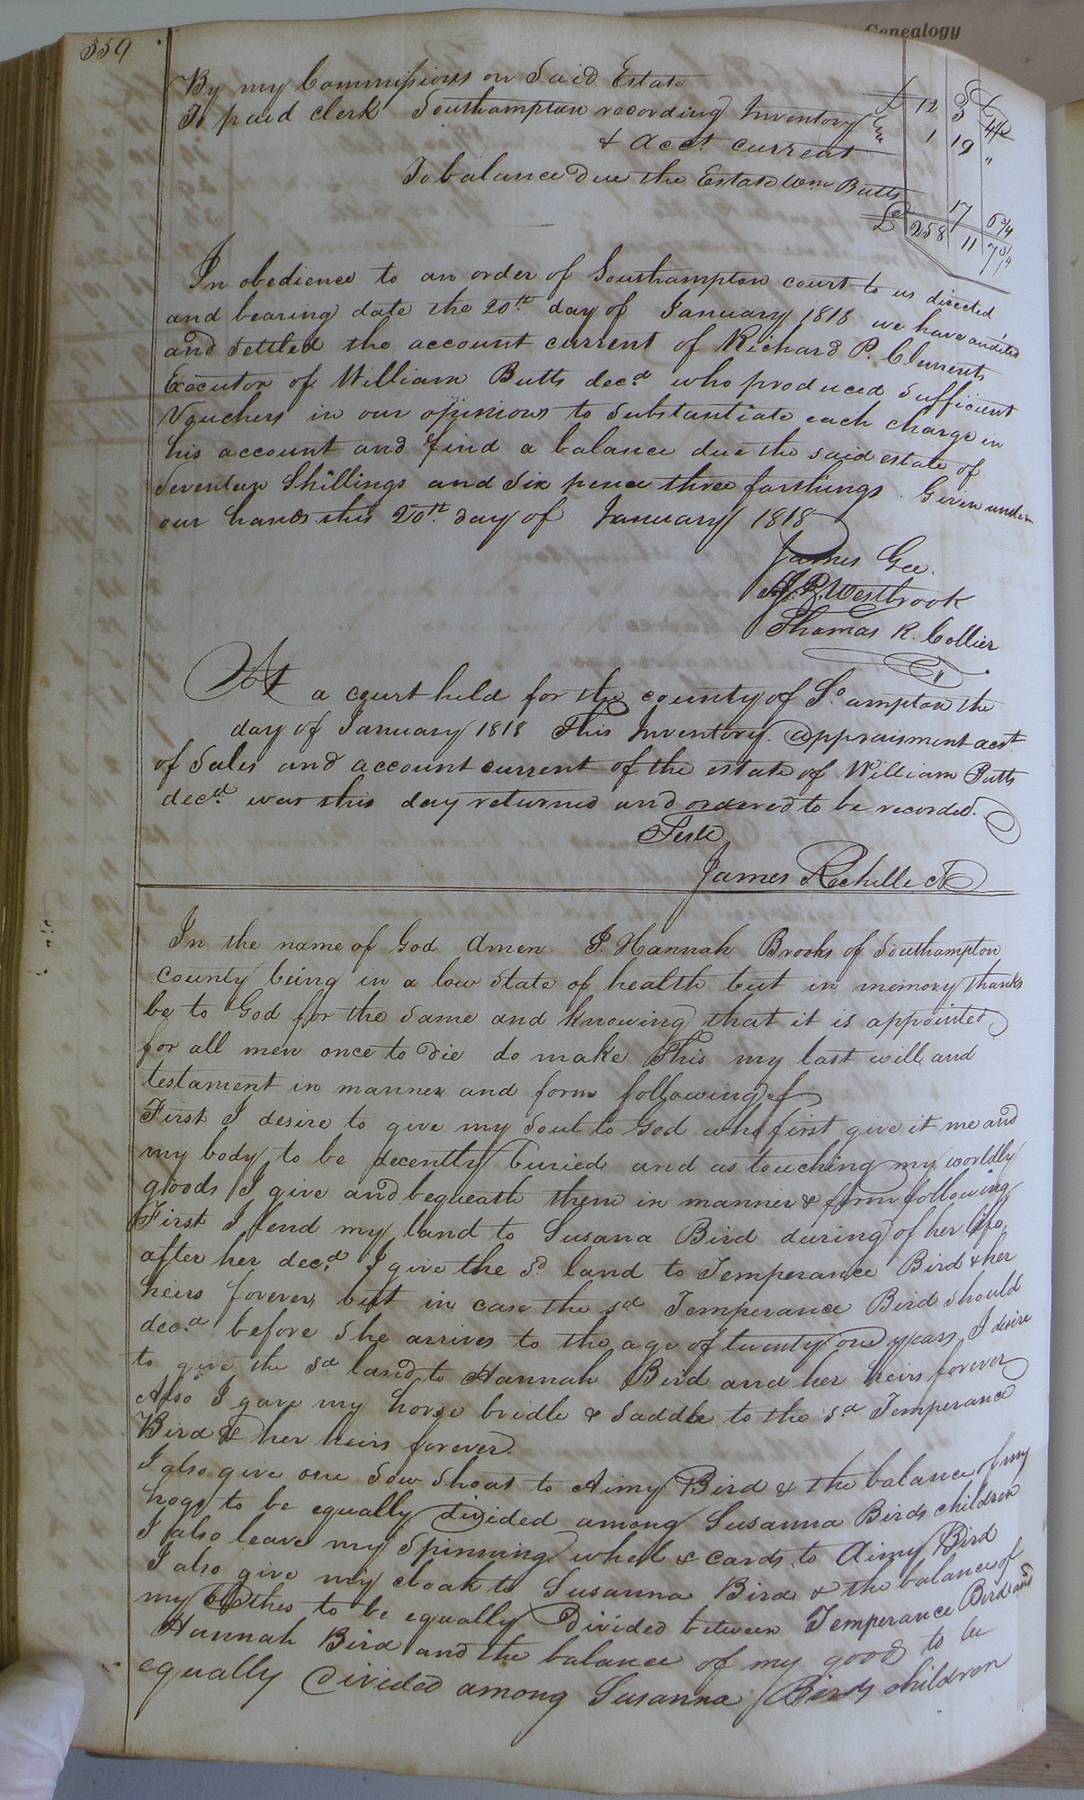 Genealogy
359
By my Commissions on Said Estate £ 12 3
To paid clerk Southampton recording Inventory
& acct current 1 19 "
To balance due the Estate Wm Butts 17 6 3/4
£ 258 11 7 3/4
In obedience to an order of Southampton court to us directed
and bearing date the 20th day of January 1818 we have audited
and Settled the account current of Richard P. Clements
Executor of William Butts decd who produced Sufficient
Vouchers in our opinions to Substantiate each charge in
his account and find a balance due the said estate of
Seventeen Shillings and Six pence three farthings. Given under
our hands this 20th day of January 1818
James Gee.
Westbrook
Thomas R. Collier
At a court held for the county of So ampton the
day of January 1818 This Inventory. appraisment acct
of Sales and account current of the estate of William Butts
decd was this day returned and ordered to be recorded.
Teste
James Rochelle
In the name of God Amen. I. Hannah Brooks of Southampton
County being in a low State of health but in memory thanks
be to God for the Same and knowing that it is appointed
for all men once to die do make This my last will and
testament in manner and form following
First I desire to give my Soul to God who first give it me and
my body to be decently buried and as touching my worldly
goods I give and bequeath them in manner & form following
First I lend my land to Susana Bird during of her life,
after her decd I give the Sd land to Temperance Bird & her
heirs forever, but in case the sd Temperance Bird Should
decd before She arrives to the age of twenty one years, I desire
to give the Sd land to Hannah Bird and her heirs forever
Also I gave my horse bridle & Saddle to the sd Temperance
Bird & her heirs forever.
I also give one Sow Shoat to Aimy Bird & the balance of my
hogs to be equally divided among Susanna Birds children
I also leave my Spinning wheel & cards to Aimy Bird
I also give my cloak to Susanna Bird & the balance of
my Clothes to be equally Divided between Temperance Bird and
Hannah Bird and the balance of my good to be
equally Divided among Susanna Birds children